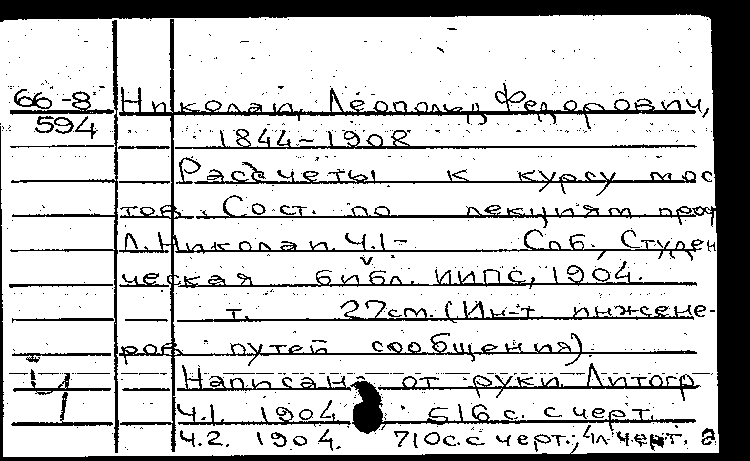 66-8 Николаи, Леопольд Федорович,
594 1844-1908
Рассчеты к курсу мос
тов. Сост. по лекциям проф
Л. Николаи. Ч.1- Спб., Студен
ческая библ. ИИПС, 1904.
т. 27см. (Ин-т инжене-
ров путей сообщения).
Ч Написано от руки Литогр
Ч.1. 1904 516 с. с черт.
Ч.2. 1904. 710с. с черт., 4л черт.